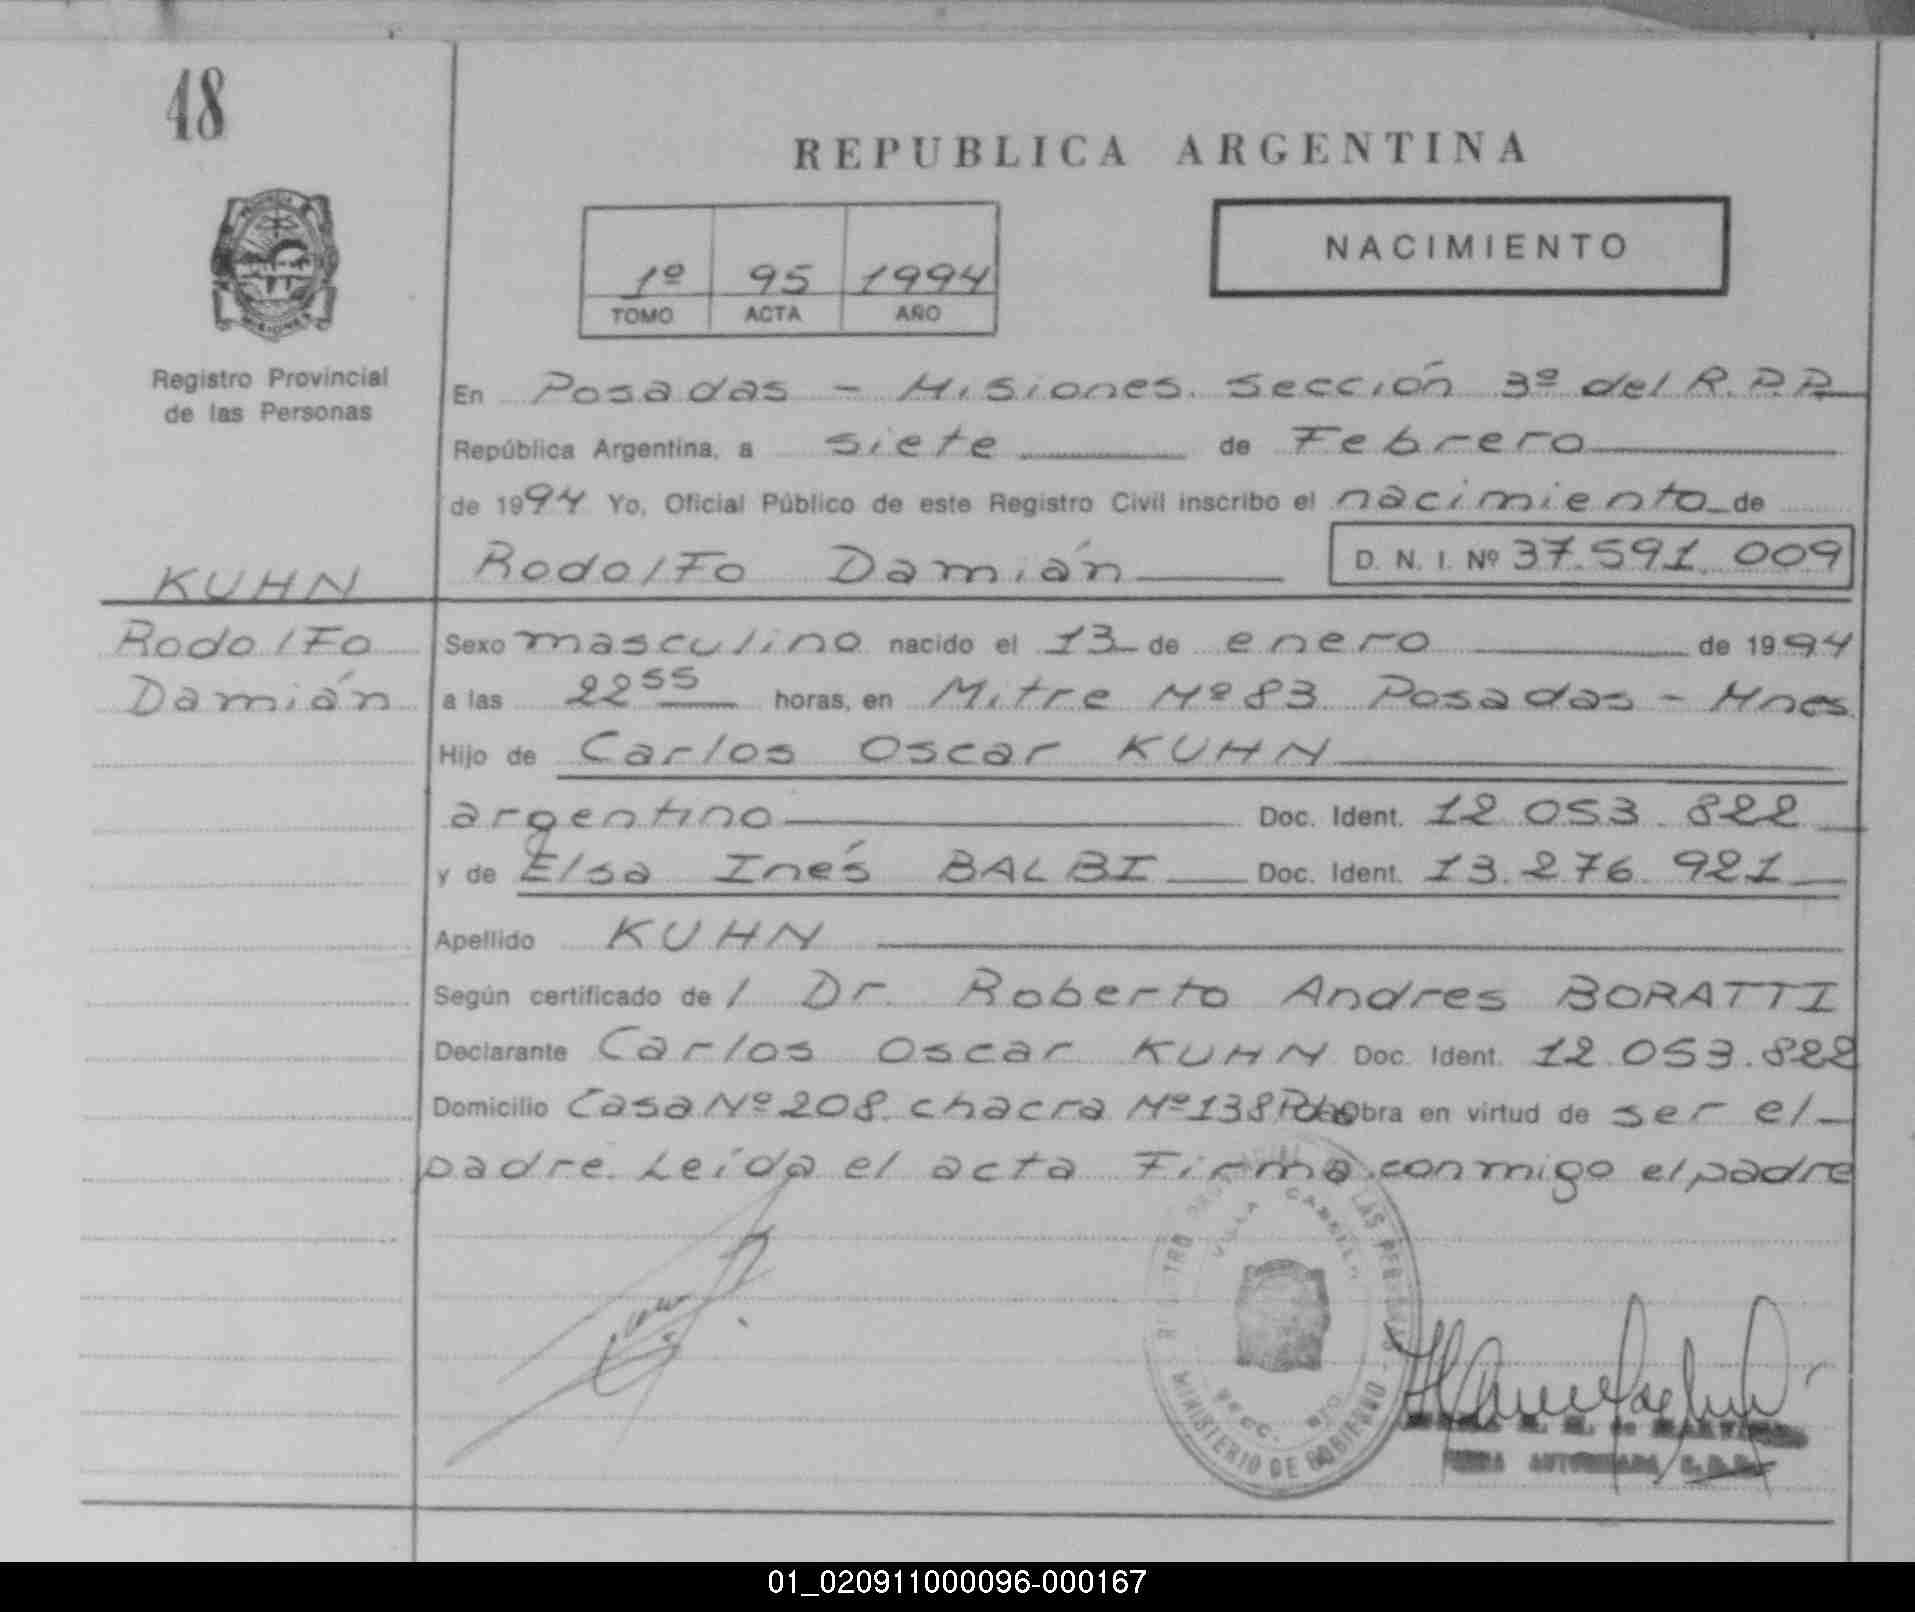 48
REPUBLICA ARGENTINA
NACIMIENTO
1º 95 1994
TOMO ACTA AÑO
MISIONES
Registro Provincial
de las Personas
En Posadas - Misiones. Sección 3º del R.P.P.
República Argentina, a siete de Febrero
de 1994 Yo, Oficial Público de este Registro Civil inscribo el nacimiento de
KUHN
Rodolfo Damián D. N. I. Nº 37.591.009
Rodolfo
Damián
Sexo masculino nacido el 13 de enero de 1994
a las 22 55 horas, en Mitre Nº 83 Posadas - Mnes.
Hijo de Carlos Oscar KUHN
argentino Doc. Ident. 12.053.822
y de Elsa Inés BALBI Doc. Ident. 13.276.921
Apellido KUHN
Según certificado de / Dr. Roberto Andres BORATTI
Declarante Carlos Oscar KUHN Doc. Ident. 12.053.822
Domicilio Casa Nº 208 chacra Nº 138 Obra en virtud de ser el
padre. Leída el acta Firma conmigo el padre
LAS PERSONAS
VILLA CABELLO
SECC.
MINISTERIO DE GOBIERNO
01_020911000096-000167